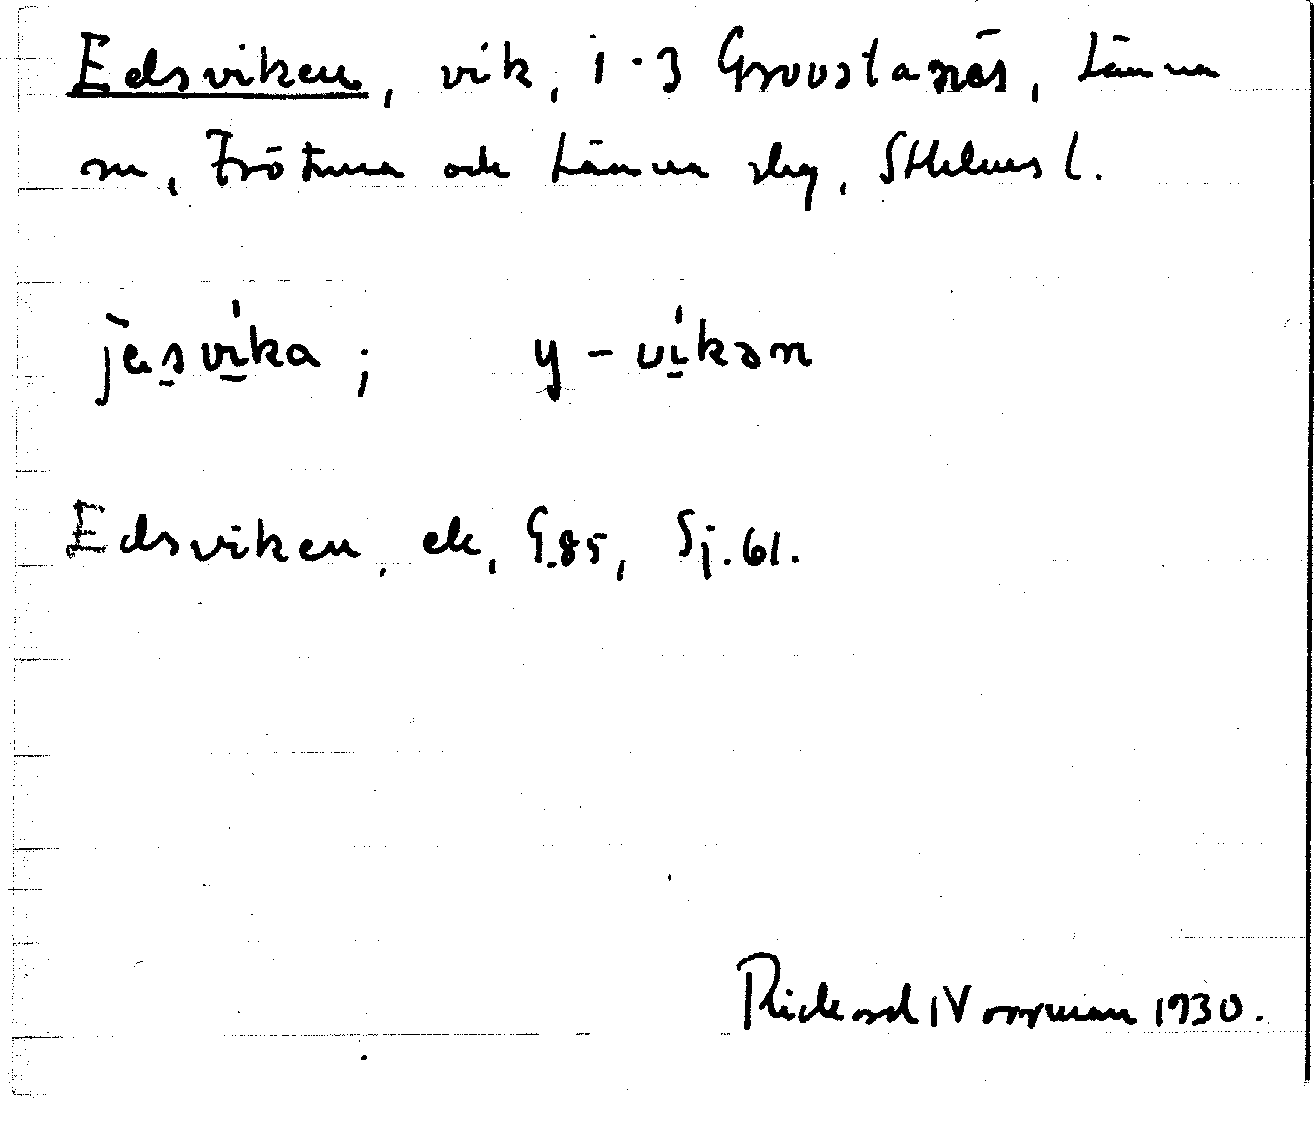 Edsviken, vik, 1·3 Grovstanäs, Länna
sn, Frötuna och Länna slg, Sthlms l.
jesvika; y-vikən
Edsviken, ek, G.85, Sj.61.
Rickard Norrman 1930.